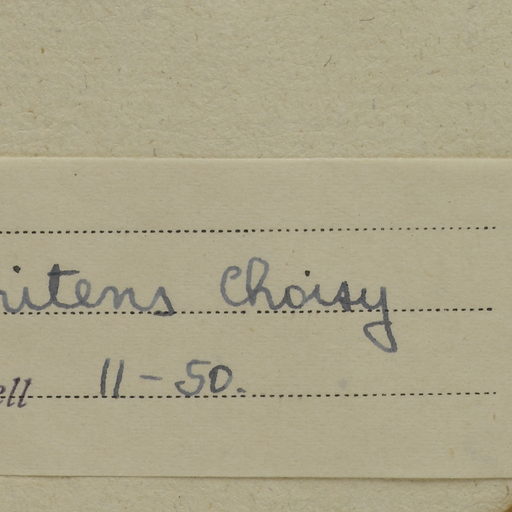 nitens Choisy
ell 11-50.